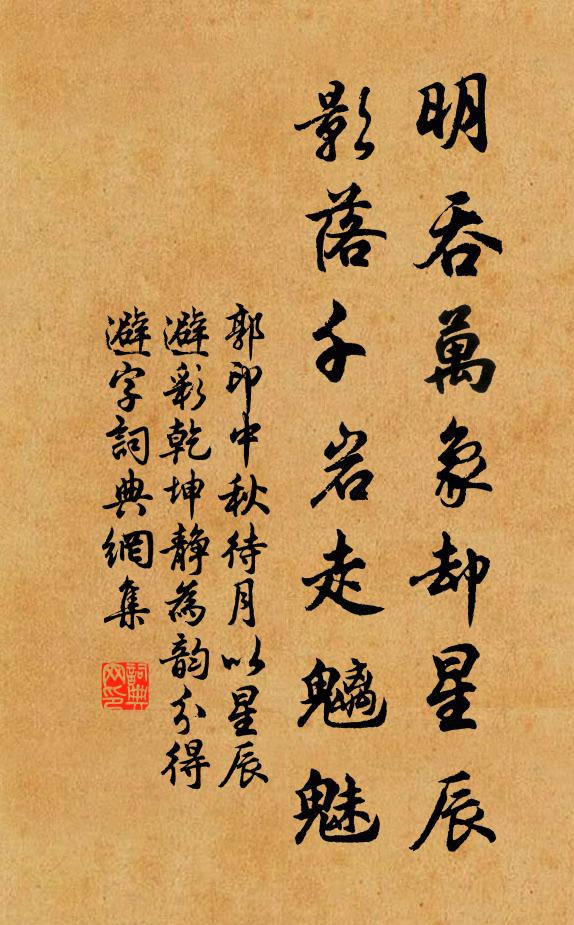 明吞萬象却星辰
影落千岩走魑魅
郭印中秋待月以星辰
避彩乾坤静為韵分得
避字詞典網集
詞典网印